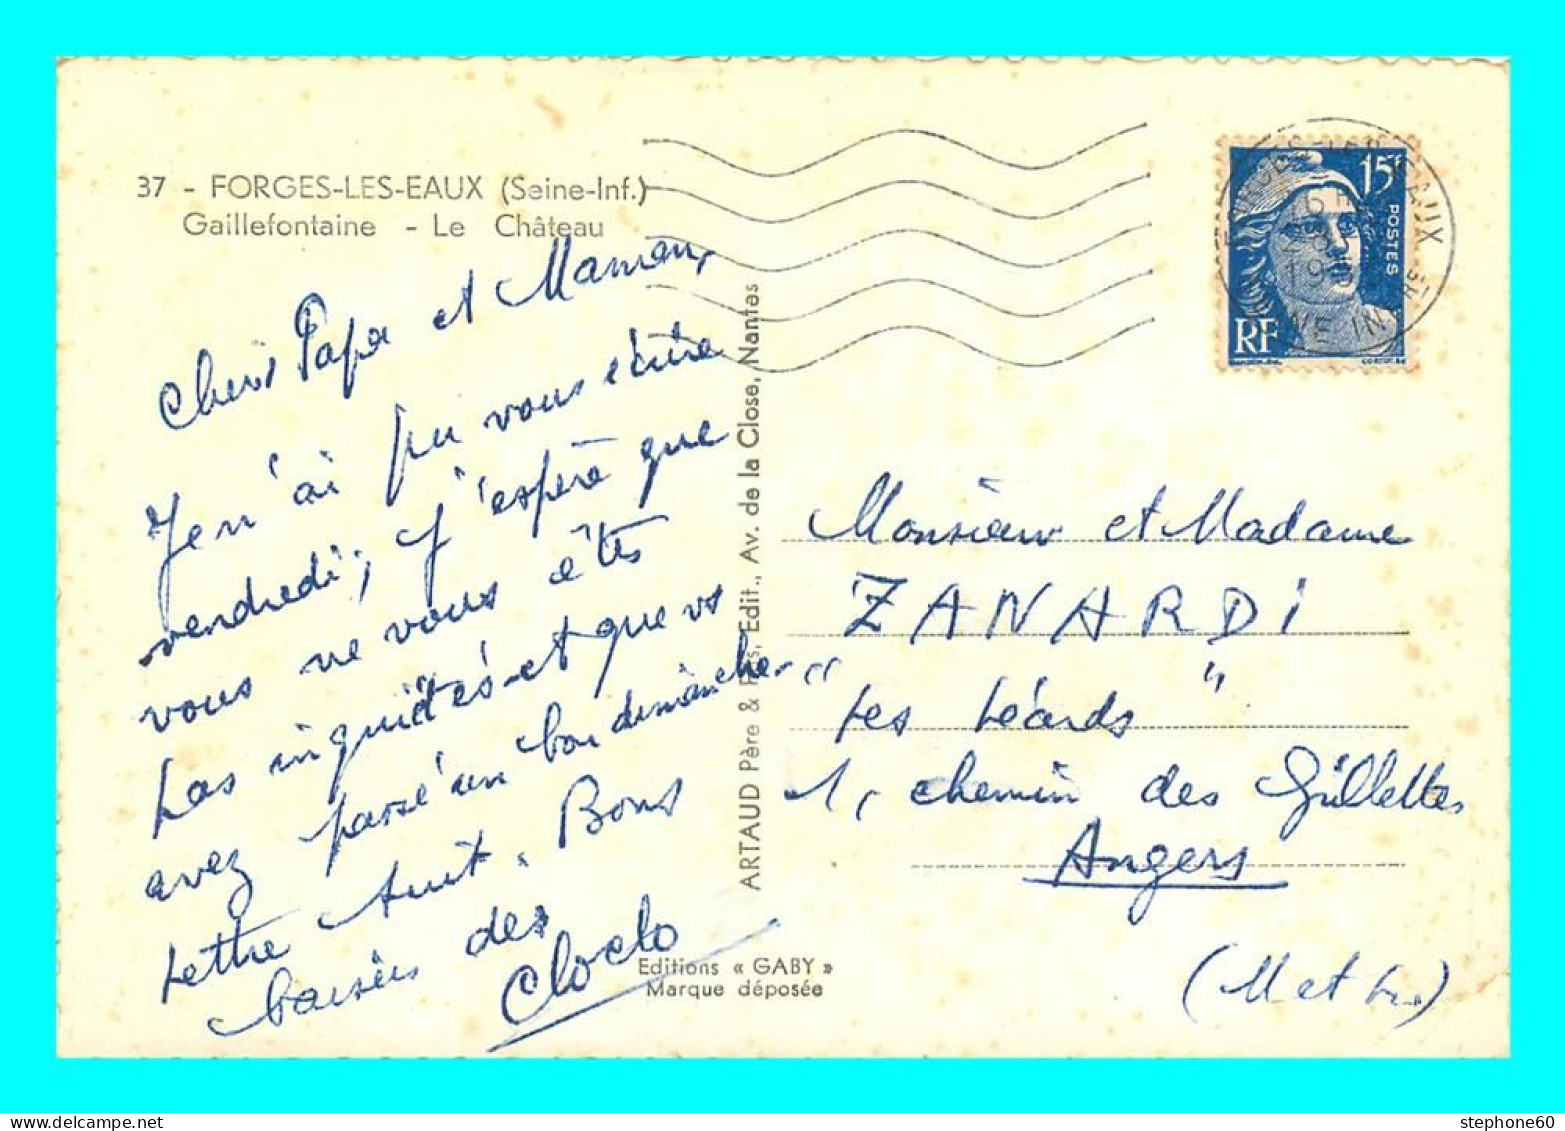 37 - FORGES-LES-EAUX (Seine-Inf.)
Gaillefontaine - Le Château
Chers Papa et Maman,
Je n'ai pu vous écrire
vendredi; j'espère que
vous ne vous êtes
pas inquiétés et que vs
avez passé un bon dimanche.
Lettre suit. Bons
baisers des
Cloclo
Editions « GABY »
Marque déposée
ARTAUD Père & Fils, Edit., Av. de la Close, Nantes
15F
POSTES
RF
FORGES LES EAUX
Monsieur et Madame
ZANARDI
"Les Léards"
1, chemin des Gûllettes
Angers
(M et L.)
stephone60